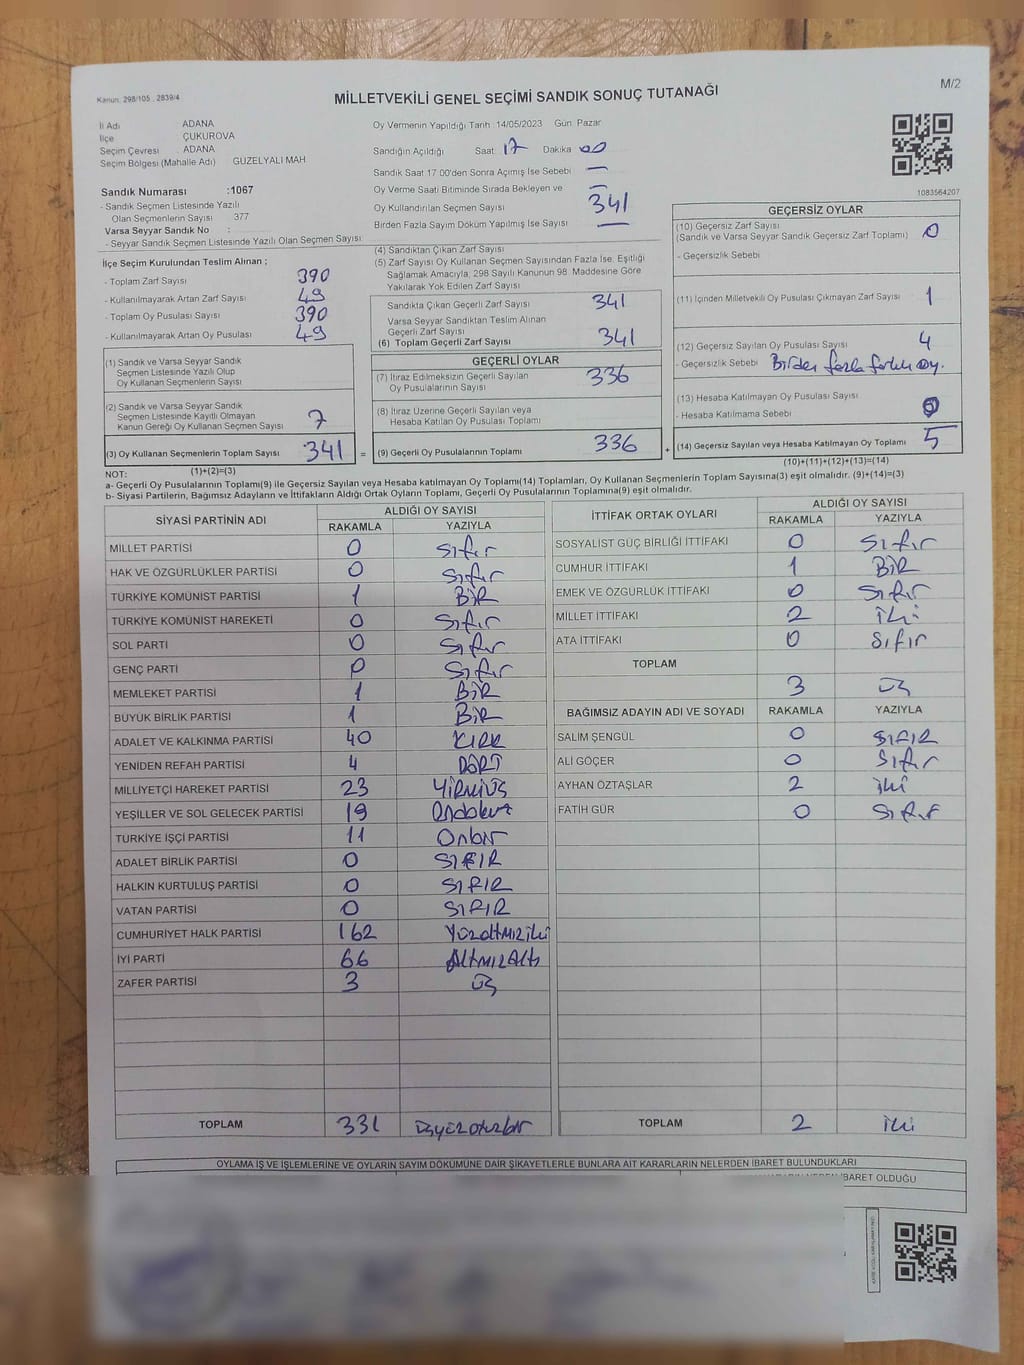 Kanun: 298/105 , 2839/4
MİLLETVEKİLİ GENEL SEÇİMİ SANDIK SONUÇ TUTANAĞI
M/2
İl Adı ADANA
İlçe ÇUKUROVA
Seçim Çevresi ADANA
Seçim Bölgesi (Mahalle Adı) GÜZELYALI MAH
Sandık Numarası :1067
- Sandık Seçmen Listesinde Yazılı
Olan Seçmenlerin Sayısı 377
Varsa Seyyar Sandık No :
- Seyyar Sandık Seçmen Listesinde Yazılı Olan Seçmen Sayısı :
Oy Vermenin Yapıldığı Tarih 14/05/2023 Gün Pazar
Sandığın Açıldığı Saat 17 Dakika 00
Sandık Saat 17:00'den Sonra Açımış İse Sebebi —
Oy Verme Saati Bitiminde Sırada Bekleyen ve —
Oy Kullandırılan Seçmen Sayısı 341
Birden Fazla Sayım Döküm Yapılmış İse Sayısı —
1083564207
İlçe Seçim Kurulundan Teslim Alınan ;
- Toplam Zarf Sayısı 390
- Kullanılmayarak Artan Zarf Sayısı 49
- Toplam Oy Pusulası Sayısı 390
- Kullanılmayarak Artan Oy Pusulası 49
(1) Sandık ve Varsa Seyyar Sandık
Seçmen Listesinde Yazılı Olup
Oy Kullanan Seçmenlerin Sayısı
(2) Sandık ve Varsa Seyyar Sandık
Seçmen Listesinde Kayıtlı Olmayan
Kanun Gereği Oy Kullanan Seçmen Sayısı 7
(3) Oy Kullanan Seçmenlerin Toplam Sayısı 341 =
(4) Sandıktan Çıkan Zarf Sayısı
(5) Zarf Sayısı Oy Kullanan Seçmen Sayısından Fazla İse, Eşitliği
Sağlamak Amacıyla, 298 Sayılı Kanunun 98. Maddesine Göre
Yakılarak Yok Edilen Zarf Sayısı
Sandıkta Çıkan Geçerli Zarf Sayısı 341
Varsa Seyyar Sandıktan Teslim Alınan
Geçerli Zarf Sayısı
(6) Toplam Geçerli Zarf Sayısı 341
GEÇERLİ OYLAR
(7) İtiraz Edilmeksizin Geçerli Sayılan
Oy Pusulalarının Sayısı 336
(8) İtiraz Üzerine Geçerli Sayılan veya
Hesaba Katılan Oy Pusulası Toplamı
(9) Geçerli Oy Pusulalarının Toplamı 336 +
GEÇERSİZ OYLAR
(10) Geçersiz Zarf Sayısı
(Sandık ve Varsa Seyyar Sandık Geçersiz Zarf Toplamı) 0
- Geçersizlik Sebebi
(11) İçinden Milletvekili Oy Pusulası Çıkmayan Zarf Sayısı 1
(12) Geçersiz Sayılan Oy Pusulası Sayısı 4
- Geçersizlik Sebebi Birden fazla farklı oy.
(13) Hesaba Katılmayan Oy Pusulası Sayısı
- Hesaba Katılmama Sebebi 0
(14) Geçersiz Sayılan veya Hesaba Katılmayan Oy Toplamı 5
NOT: (1)+(2)=(3)
(10)+(11)+(12)+(13)=(14)
a- Geçerli Oy Pusulalarının Toplamı(9) ile Geçersiz Sayılan veya Hesaba Katılmayan Oy Toplamı(14) Toplamları, Oy Kullanan Seçmenlerin Toplam Sayısına(3) eşit olmalıdır. (9)+(14)=(3)
b- Siyasi Partilerin, Bağımsız Adayların ve İttifakların Aldığı Ortak Oyların Toplamı, Geçerli Oy Pusulalarının Toplamına(9) eşit olmalıdır.
SİYASİ PARTİNİN ADI ALDIĞI OY SAYISI
RAKAMLA YAZIYLA
MİLLET PARTİSİ 0 Sıfır
HAK VE ÖZGÜRLÜKLER PARTİSİ 0 Sıfır
TÜRKİYE KOMÜNİST PARTİSİ 1 BİR
TÜRKİYE KOMÜNİST HAREKETİ 0 Sıfır
SOL PARTİ 0 Sıfır
GENÇ PARTİ 0 Sıfır
MEMLEKET PARTİSİ 1 BİR
BÜYÜK BİRLİK PARTİSİ 1 BİR
ADALET VE KALKINMA PARTİSİ 40 KIRK
YENİDEN REFAH PARTİSİ 4 DÖRT
MİLLİYETÇİ HAREKET PARTİSİ 23 YİRMİÜÇ
YEŞİLLER VE SOL GELECEK PARTİSİ 19 Ondokuz
TÜRKİYE İŞÇİ PARTİSİ 11 Onbir
ADALET BİRLİK PARTİSİ 0 SIFIR
HALKIN KURTULUŞ PARTİSİ 0 SIFIR
VATAN PARTİSİ 0 SIFIR
CUMHURİYET HALK PARTİSİ 162 Yüzaltmışiki
İYİ PARTİ 66 Altmışaltı
ZAFER PARTİSİ 3 üç
TOPLAM 331 üçyüzotuzbir
İTTİFAK ORTAK OYLARI ALDIĞI OY SAYISI
RAKAMLA YAZIYLA
SOSYALİST GÜÇ BİRLİĞİ İTTİFAKI 0 Sıfır
CUMHUR İTTİFAKI 1 BİR
EMEK VE ÖZGÜRLÜK İTTİFAKI 0 Sıfır
MİLLET İTTİFAKI 2 İki
ATA İTTİFAKI 0 Sıfır
TOPLAM
3 üç
BAĞIMSIZ ADAYIN ADI VE SOYADI RAKAMLA YAZIYLA
SALİM ŞENGÜL 0 SIFIR
ALİ GÖÇER 0 Sıfır
AYHAN ÖZTAŞLAR 2 iki
FATİH GÜR 0 Sıfır
TOPLAM 2 iki
OYLAMA İŞ VE İŞLEMLERİNE VE OYLARIN SAYIM DÖKÜMÜNE DAİR ŞİKAYETLERLE BUNLARA AİT KARARLARIN NELERDEN İBARET BULUNDUKLARI
İBARET OLDUĞU